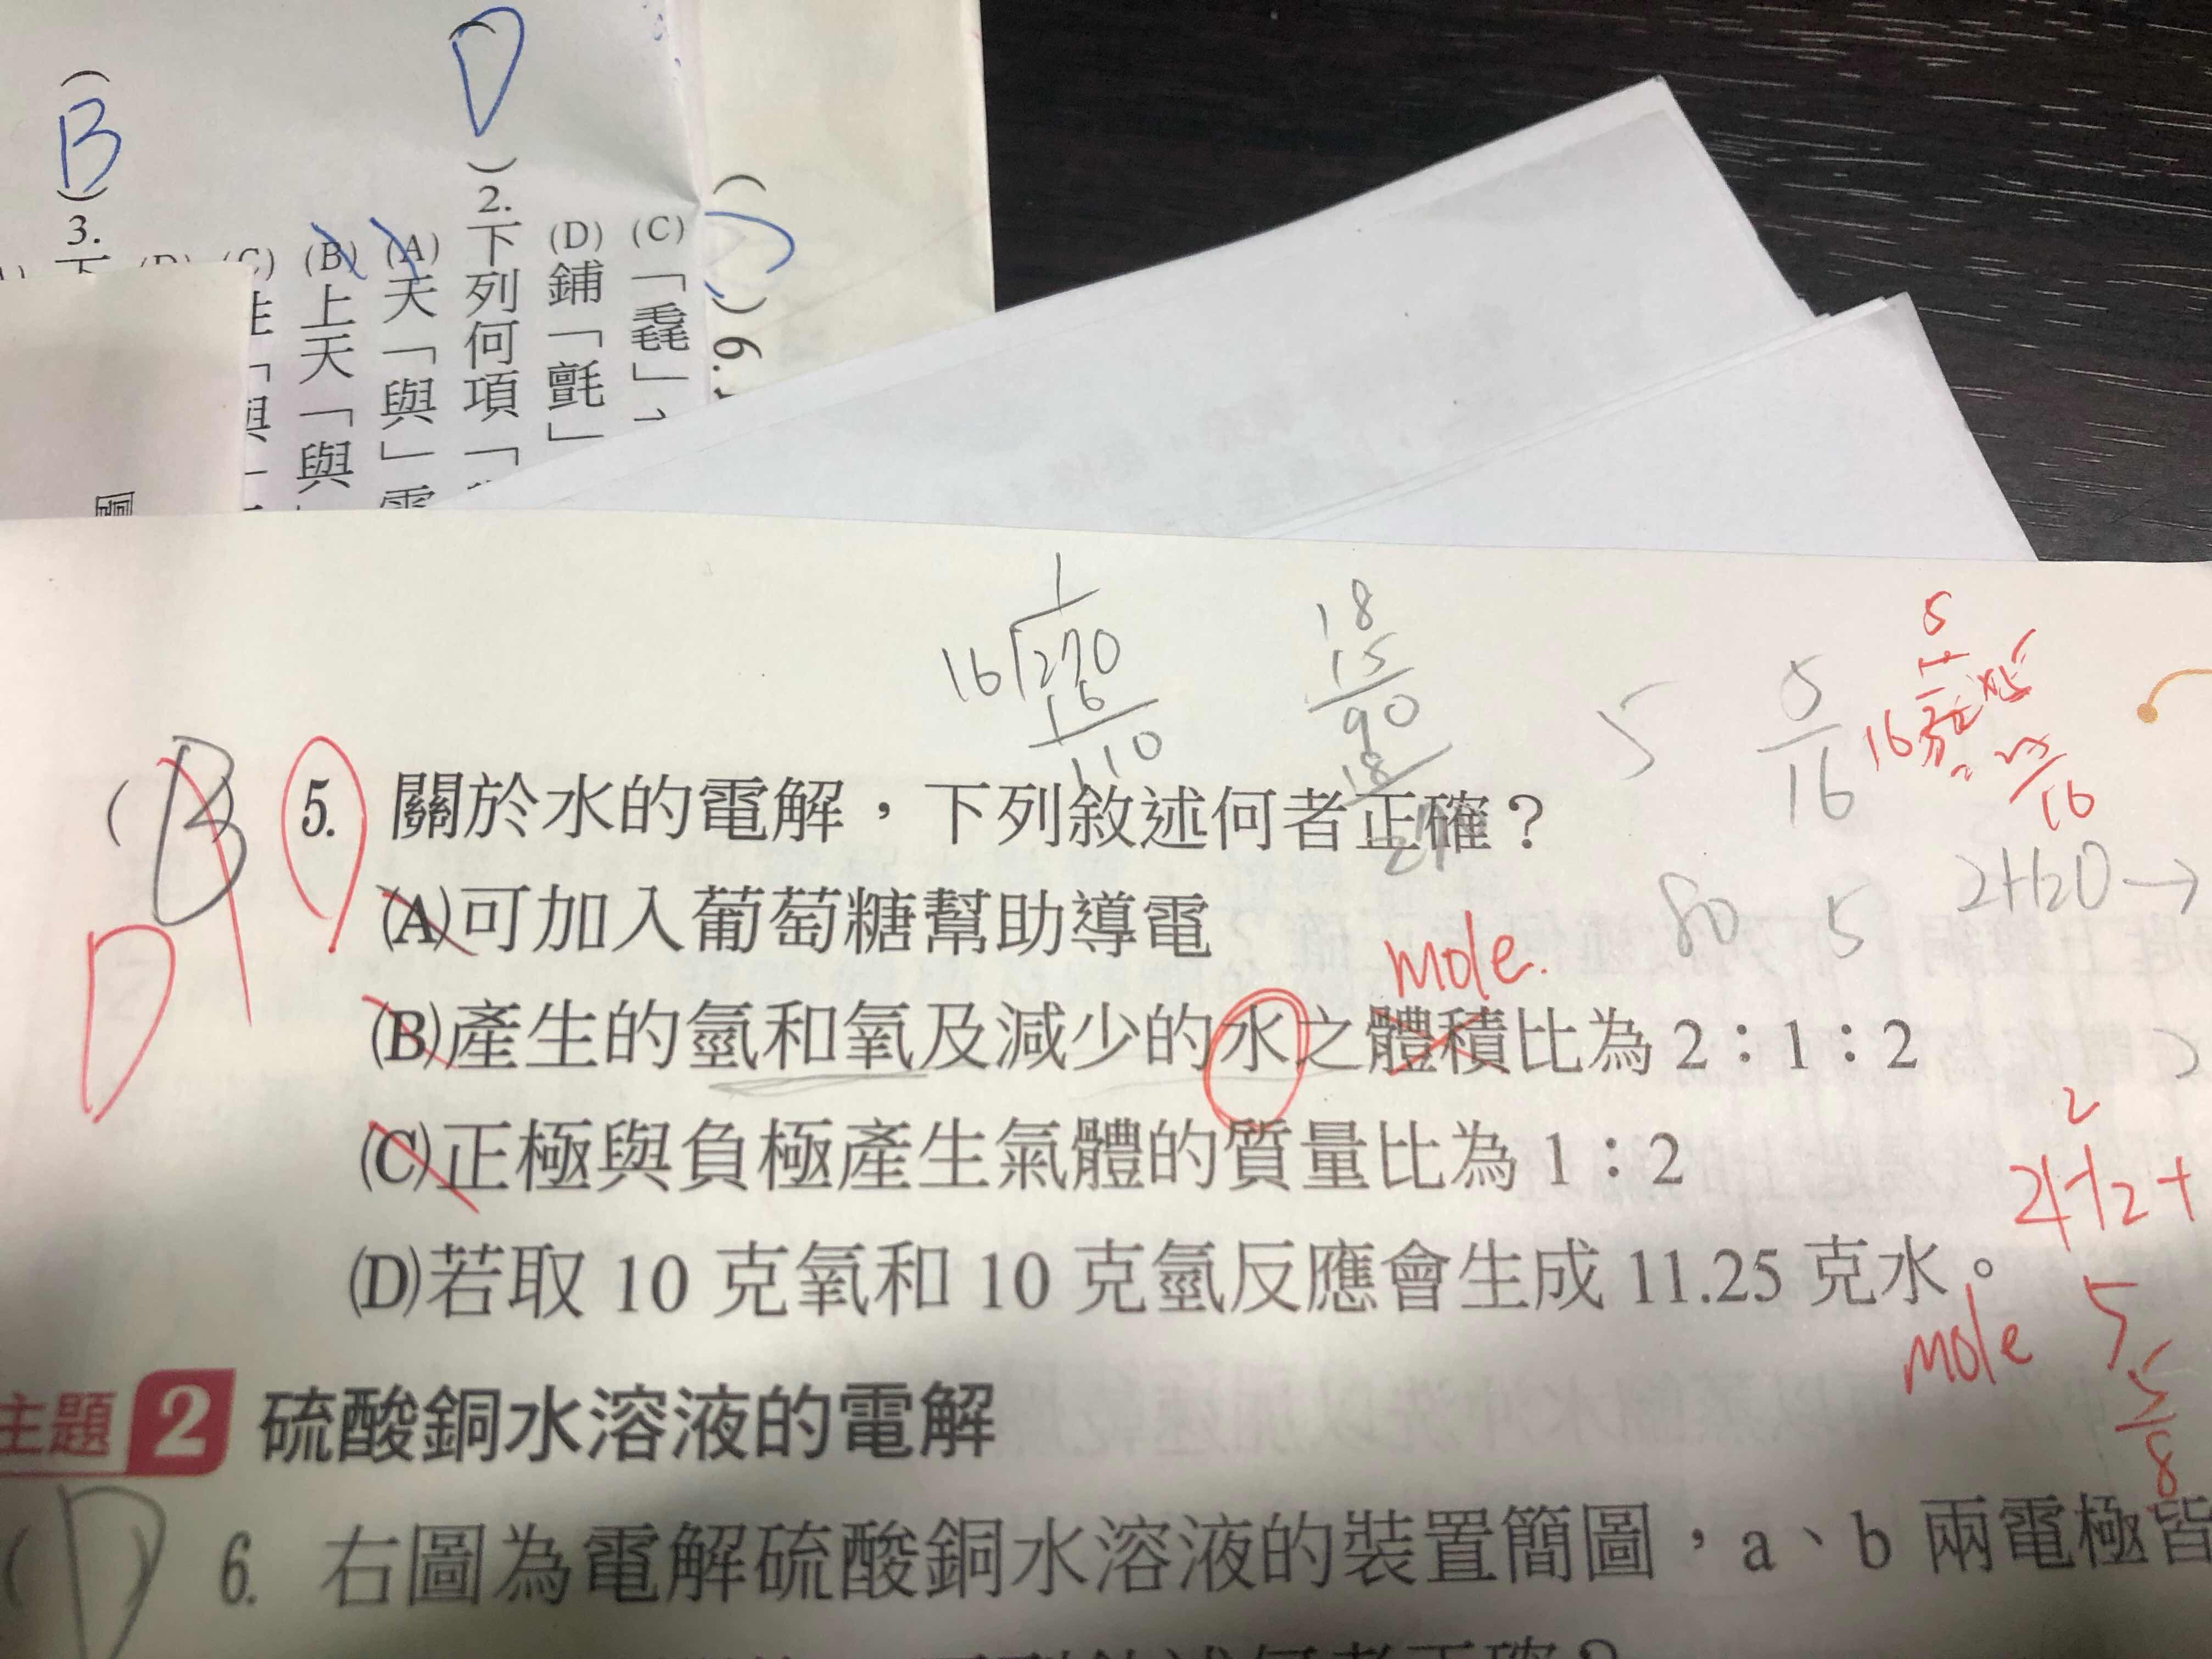 D
B
(C)「毳」
(D)鋪「氈」
2. 下列何項「
(A)天「與」
(B)上天「與
3.
6.
1
16 270
16
110
18
15
90
18
5
5
16
80 5
2H2O→
B
D
5. 關於水的電解，下列敘述何者正確？
(A)可加入葡萄糖幫助導電
mole.
(B)產生的氫和氧及減少的水之體積比為 2：1：2
(C)正極與負極產生氣體的質量比為 1：2
2
2H2+
(D)若取 10 克氧和 10 克氫反應會生成 11.25 克水。
mole 5
5
8
主題 2 硫酸銅水溶液的電解
(D) 6. 右圖為電解硫酸銅水溶液的裝置簡圖，a、b 兩電極皆